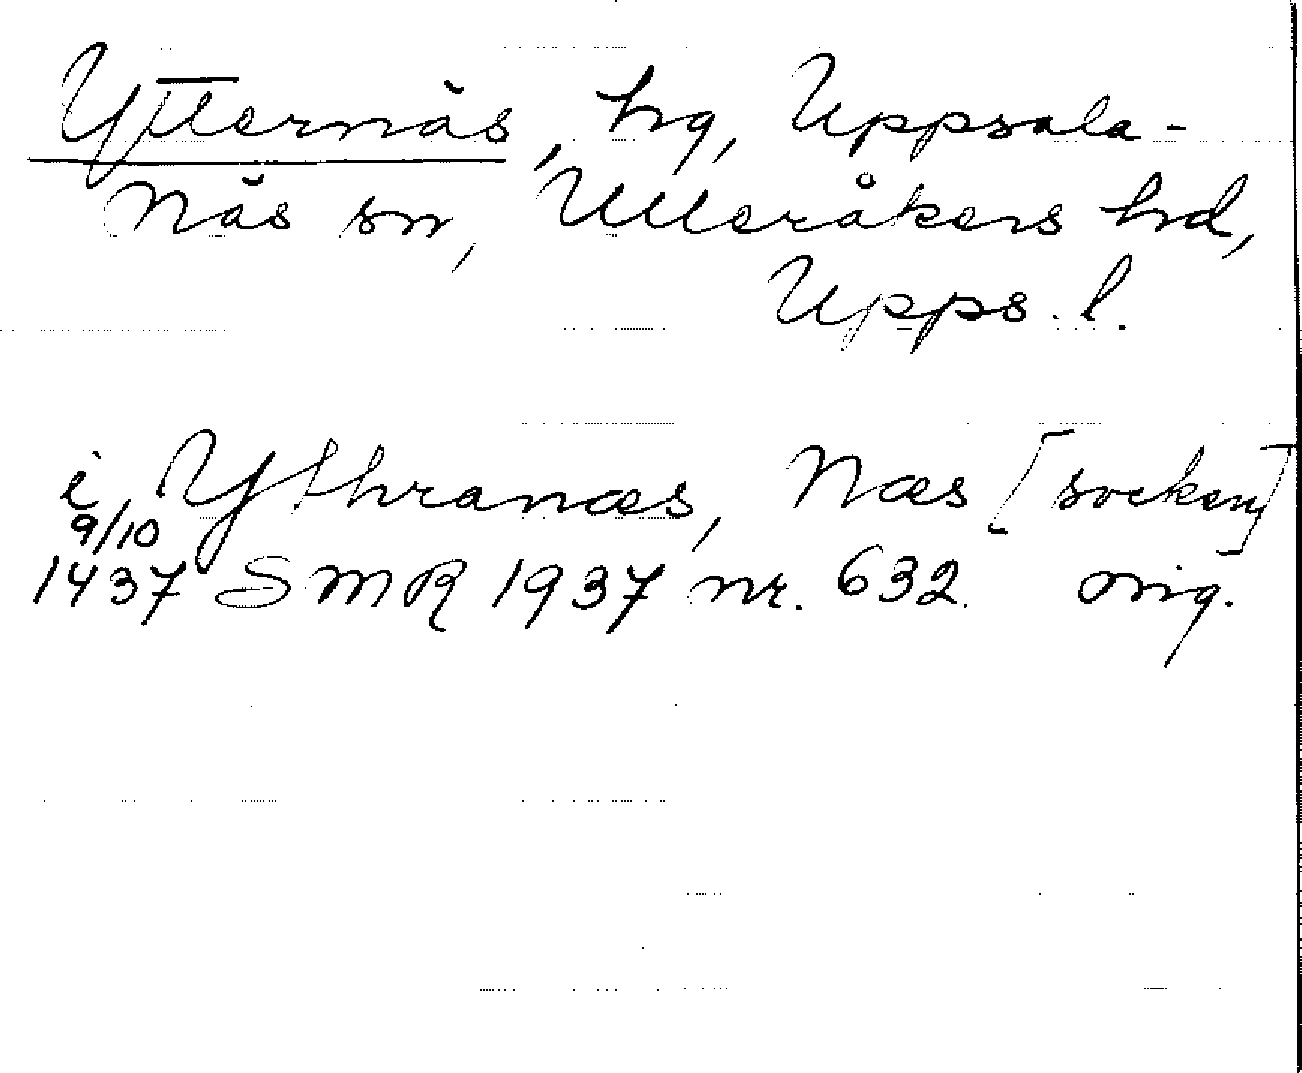 Ytternäs, hg, Uppsala-
Näs sn, Ulleråkers hd,
Upps. l.
i Ythranæs, Næs [socken]
9/10
1437 SMR 1937 nr. 632 orig.